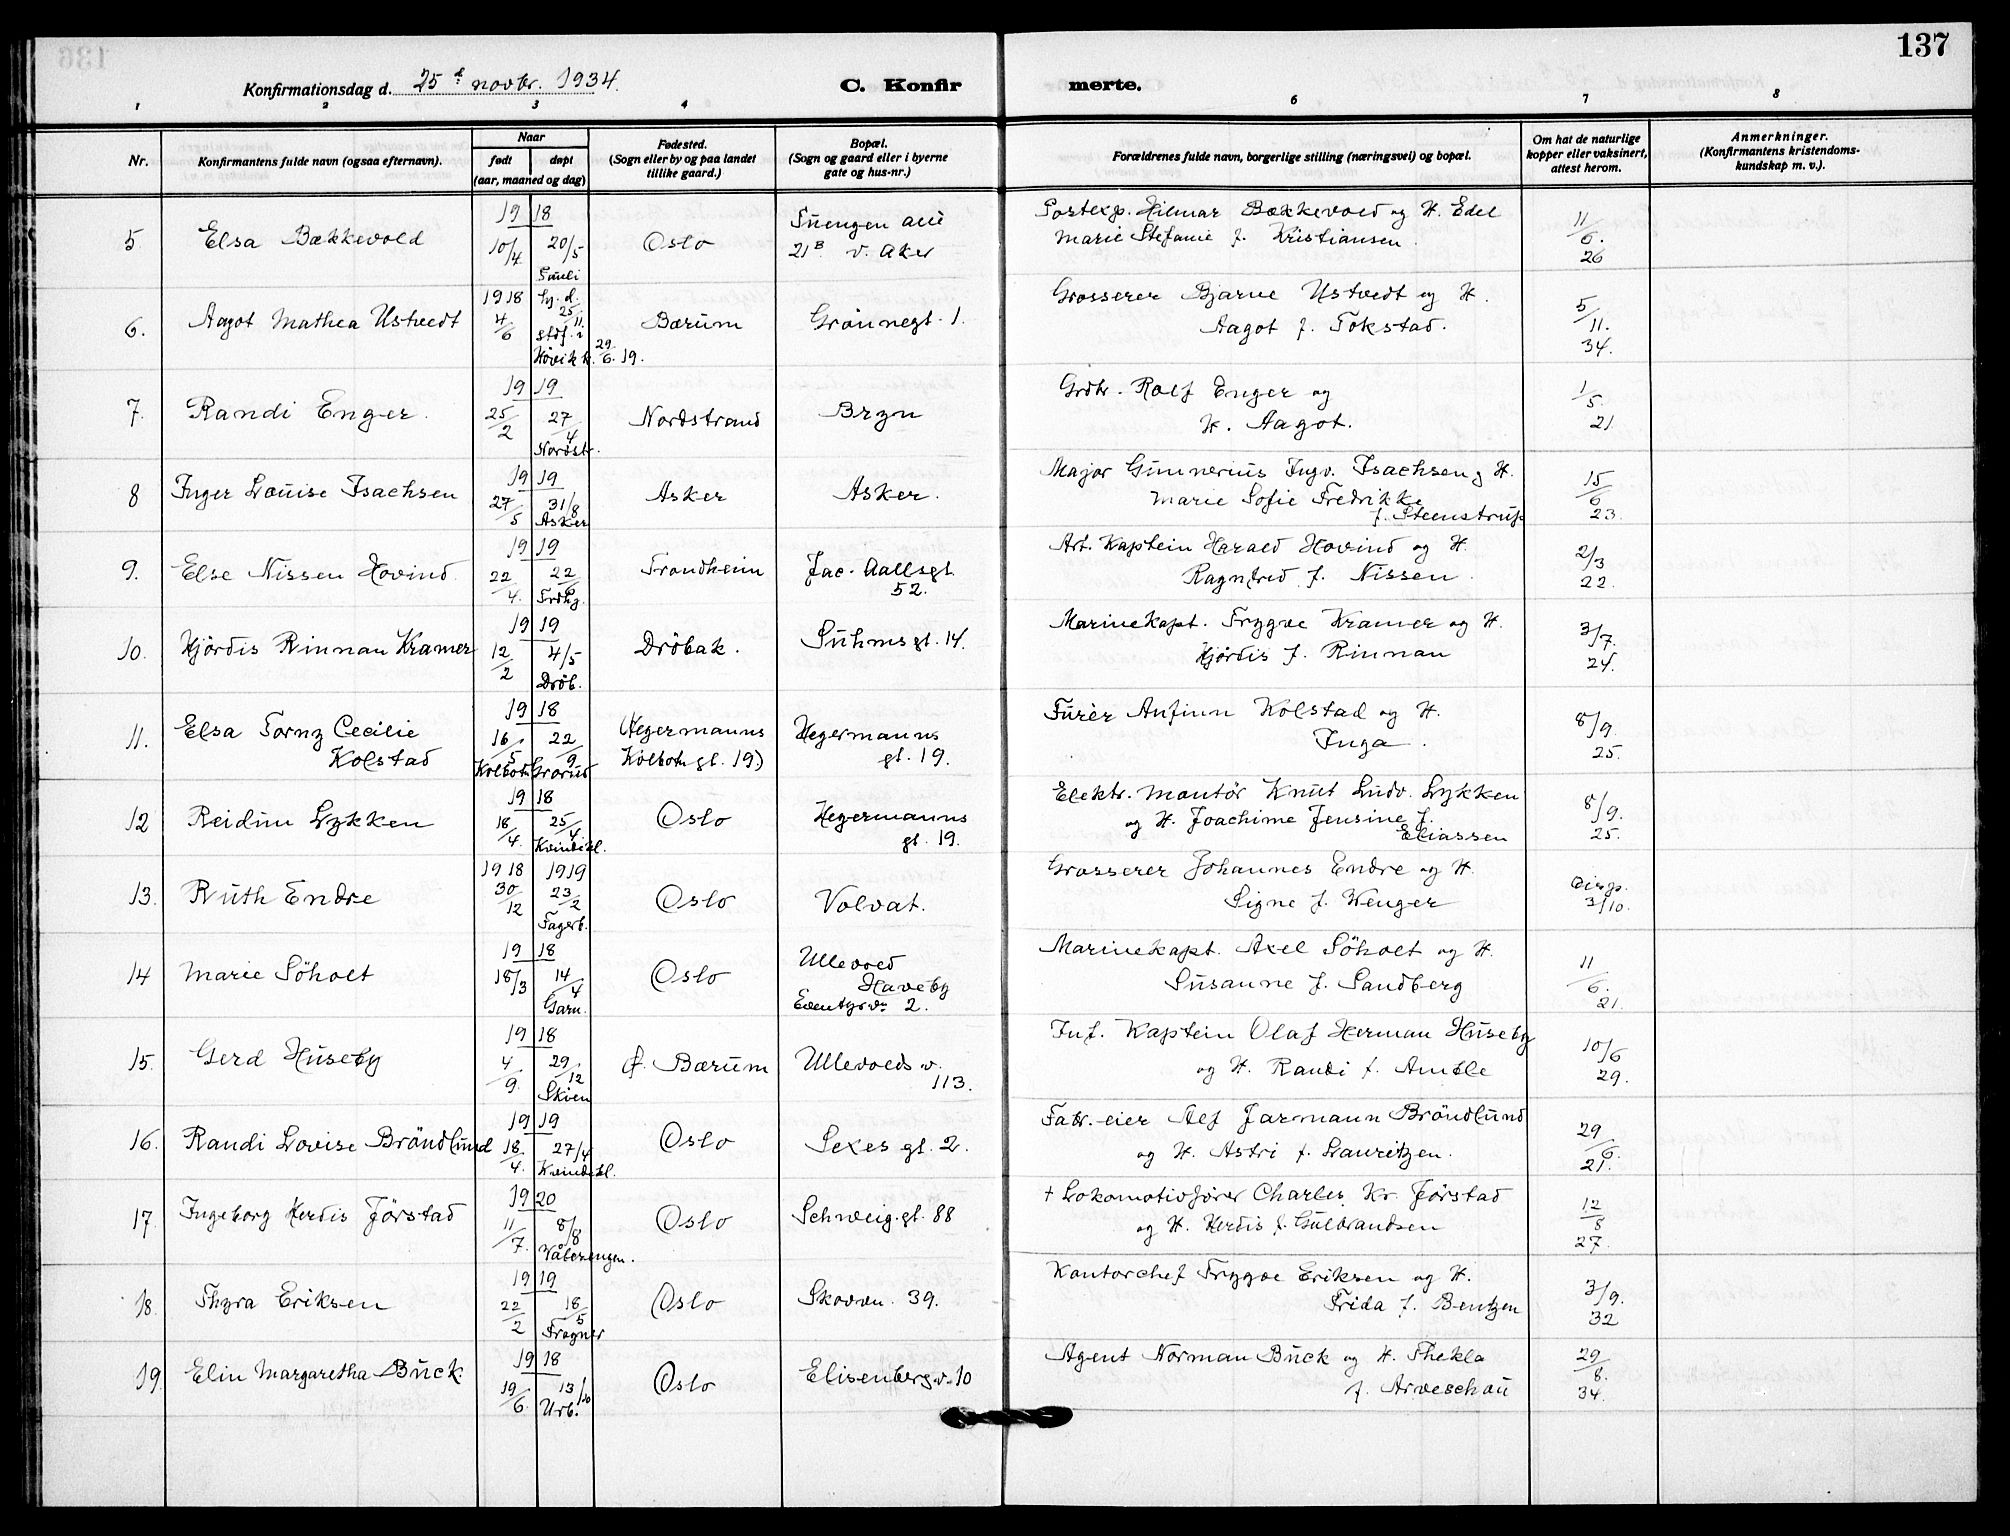 137
Konfirmationsdag d. 25d novbr. 1934.
C. Konfir merte.
1 2 3 4 6 7 8
Nr.
Konfirmantens fulde navn (ogsaa efternavn).
Naar
født døpt
(aar, maaned og dag)
Fødested.
(Sogn eller by og paa landet
tillike gaard.)
Bopæl.
(Sogn og gaard eller i byerne
gate og hus-nr.)
Forældrenes fulde navn, borgerlige stilling (næringsvei) og bopæl.
Om hat de naturlige
kopper eller vaksinert,
attest herom.
Anmerkninger.
(Konfirmantens kristendoms-
kundskap m. v.).
5. Elsa Bækkevold 1918 10/4 20/5 Pauli Oslo Tuengen allé 21B v. Aker
Postexp. Hilmar Bækkevold og H. Edel
Marie Stefanie f. Kristiansen. 11/6. 26
6. Aagot Mathea Ustvedt 1918 4/6 hj. d. 25/11. stdf. i Høvik k. 29/6. 19. Bærum Grønnegt. 1.
Grosserer Bjarne Ustvedt og H.
Aagot f. Tokstad. 5/11. 34.
7. Randi Enger. 1919 25/2 27/4 Nordstr. Nordstrand Bryn
Grdbr. Rolf Enger og
H. Aagot. 1/5. 21
8 Inger Louise Isachsen 1919 27/5 31/8 Asker Asker Asker.
Major Gunnerius Ingv. Isachsen og H.
Marie Sofie Fredrikke
f. Steenstrup 15/6 23.
9. Else Nissen Hovind 1919 22/4. 22/6 Trdhj. Trondheim Jac. Aallsgt. 52.
Art. Kaptein Harald Hovind og H.
Ragnfred f. Nissen. 2/3 22.
10. Hjördis Rinnan Kramer 1919 12/2 4/5 Dröb. Dröbak. Suhmsgt. 14.
Marinekapt. Trygve Kramer og H.
Hjördis f. Rinnan 3/7. 24.
11. Elsa Torny Cecilie
Kolstad 1918 16/5 Kolbotn 22/9 Grorud Hegermanns
Kolbotn gt. 19.) Hegermanns
gt. 19.
Furér Anfinn Kolstad og H.
Inga. 8/9. 25.
12 Reidun Lykken 1918 18/4. 25/4. Kvindekl. Oslo Hegermanns
gt. 19.
Elektr. montör Knut Ludv. Lykken
og H. Joachime Jensine f.
Eliassen 8/9. 25.
13. Ruth Endre 1918 30/12 1919 23/2 Fagerb. Oslo Volvat.
Grosserer Johannes Endre og H.
Signe f. Wenger Disp. 3/10.
14 Marie Söholt 1918 18/3 14/4 Garn. Oslo Ullevold
Haveby
Eventyrvn 2.
Marinekapt. Axel Söholt og H.
Susanne f. Sandberg 11/6. 21.
15. Gerd Huseby 1918 4/9. 29/12 Skien Bærum Ullevolds v.
113.
Inf. Kaptein Olaf Herman Huseby
og H. Randi f. Amble 10/6 29.
16. Randi Lovise Bröndlund 1919 18/4. 27/4 Kvindekl. Oslo Sexes gt. 2.
Fabr. eier Alf Jarmann Bröndlund
og H. Astri f. Lauritzen. 29/6. 21.
17. Ingeborg Herdis Jörstad 1920 11/7. 8/8 Vålerengen. Oslo Schweig. gt. 88
† Lokomotivfører Charles Kr. Jörstad
og H. Herdis f. Gulbrandsen 12/8 27.
18. Thyra Eriksen 1919 22/2 18/5 Frogner Oslo Skovvn. 39.
Kontorchef Trygve Eriksen og H.
Frida f. Bentzen 3/9. 32
19. Elin Margaretha Buck. 1918 19/6. 13/10 Urb. Oslo Elisenbergv. 10
Agent Norman Buck og H. Thekla
f. Arveschou 29/8. 34.